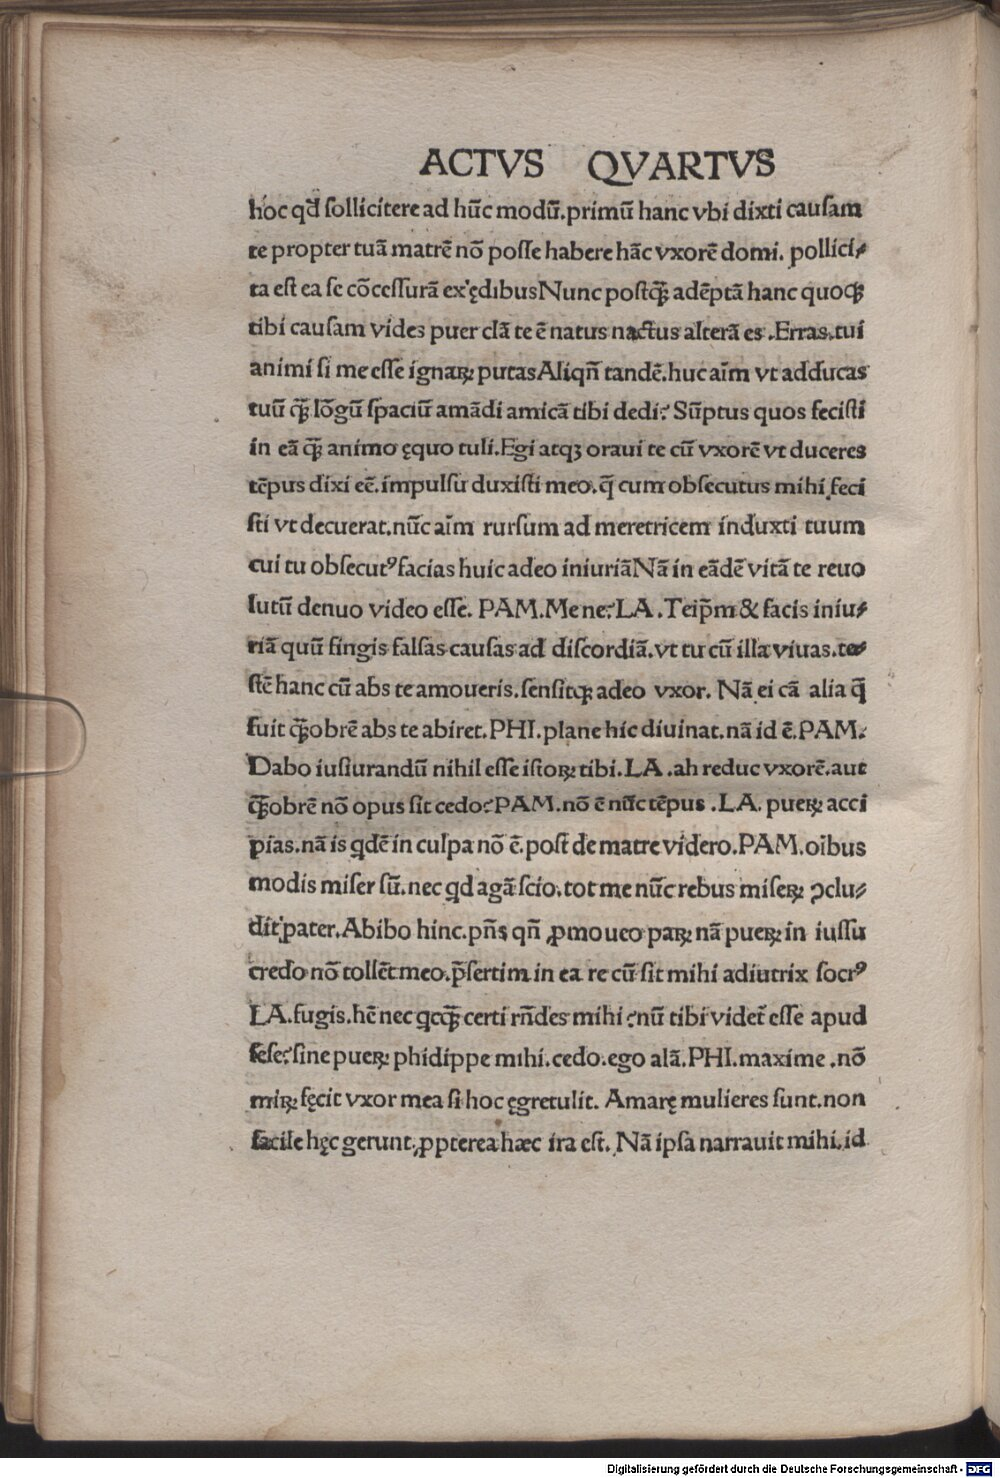 ACTVS QVARTVS
hoc qđ ſollicitere ad hūc modū.primū hanc vbi dixti cauſam
te propter tuā matrē nō poſſe habere hāc vxorē domi. pollici⸗
ta eſt ea ſe cōceſſurā ex ędibusNunc poſtq̄ꝫ adēptā hanc quoqꝫ
tibi cauſam vides puer clā te ē natus nactus alterā es .Erras.tui
animi ſi me eſſe ignaꝝ putasAliqñ tandē.huc aīm vt adducas
tuū q̄ꝫ lōgū ſpaciū amādi amicā tibi dedi? Sūptus quos feciſti
in eā q̄ꝫ animo ęquo tuli.Egi atqꝫ oraui te cū vxorē vt duceres
tēpus dixi eē.impulſu duxiſti meo.q̄ cum obſecutus mihi feci
ſti vt decuerat.nūc aīm rurſum ad meretricem induxti tuum
cui tu obſecutꝰ facias huic adeo iniuriāNā in eādē vitā te reuo
lutū denuo video eſſe. PAM.Me ne? LA .Teip̄m & facis iniu⸗
riā quū fingis falſas cauſas ad diſcordiā.vt tu cū illa viuas.te⸗
ſtē hanc cū abs te amoueris.ſenſitqꝫ adeo vxor. Nā ei cā alia q̄
fuit q̄ꝫobrē abs te abiret.PHI.plane hic diuinat.nā id ē.PAM.
Dabo iuſiurandū nihil eſſe iſtoꝝ tibi.LA .ah reduc vxorē.aut
q̄ꝫobrē nō opus ſit cedo? PAM.nō ē nūc tēpus .LA. pueꝝ acci
pias.nā is qdē in culpa nō ē.poſt de matre videro.PAM.oībus
modis miſer ſū.nec qd agā ſcio.tot me nūc rebus miſeꝝ ↄclu⸗
dit pater.Abibo hinc.pñs qñ ꝓmoueo paꝝ nā pueꝝ in iuſſu
credo nō tollēt meo.p̄ſertim in ea re cū ſit mihi adiutrix ſocrꝰ
LA.fugis.hē nec qcq̄ꝫ certi rñdes mihi ?nū tibi videt̄ eſſe apud
ſeſe? ſine pueꝝ phidippe mihi.cedo.ego alā.PHI.maxime .nō
miꝝ fęcit vxor mea ſi hoc ęgretulit. Amarę mulieres ſunt.non
facile hęc gerunt.ꝓpterea hæc ira eſt. Nā ipſa narrauit mihi.id
Digitalisierung gefördert durch die Deutsche Forschungsgemeinschaft - DFG